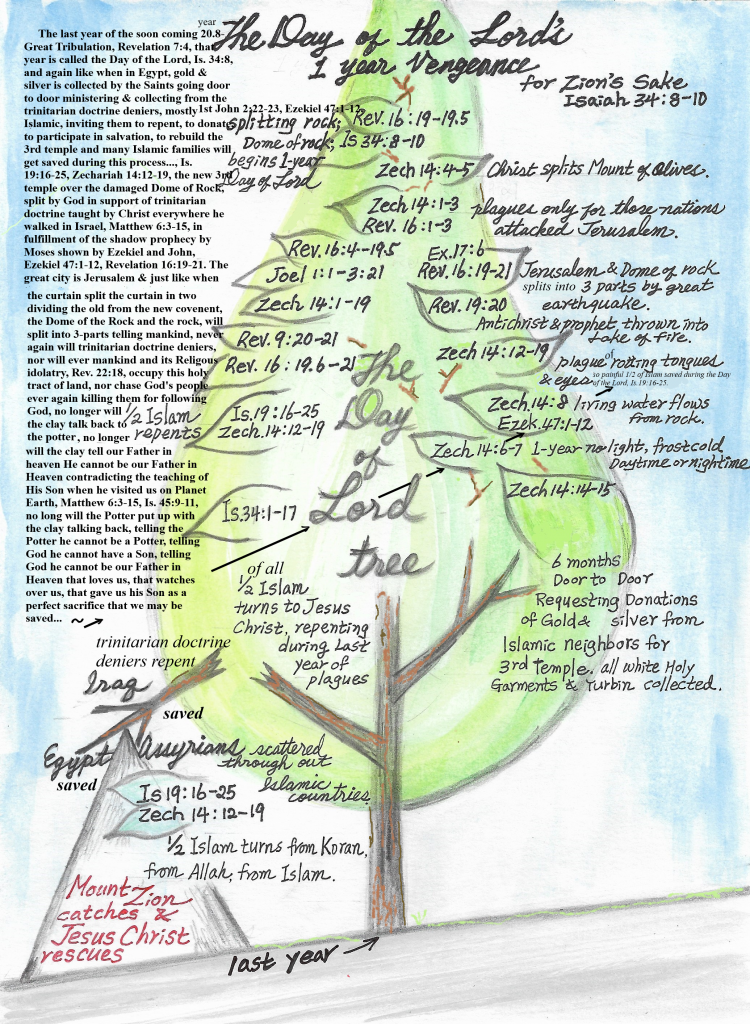 The Day of the Lord's
1 year Vengeance
for Zion's Sake
Isaiah 34:8-10
year
The last year of the soon coming 20.8-
Great Tribulation, Revelation 7:4, that
year is called the Day of the Lord, Is. 34:8,
and again like when in Egypt, gold &
silver is collected by the Saints going door
to door ministering & collecting from the
trinitarian doctrine deniers, mostly
Islamic, inviting them to repent, to donate
to participate in salvation, to rebuild the
3rd temple and many Islamic families will
get saved during this process..., Is.
19:16-25, Zechariah 14:12-19, the new 3rd
temple over the damaged Dome of Rock,
split by God in support of trinitarian
doctrine taught by Christ everywhere he
walked in Israel, Matthew 6:3-15, in
fulfillment of the shadow prophecy by
Moses shown by Ezekiel and John,
Ezekiel 47:1-12, Revelation 16:19-21. The
great city is Jerusalem & just like when
the curtain split the curtain in two
dividing the old from the new covenent,
the Dome of the Rock and the rock, will
split into 3-parts telling mankind, never
again will trinitarian doctrine deniers,
nor will ever mankind and its Religous
idolatry, Rev. 22:18, occupy this holy
tract of land, nor chase God's people
ever again killing them for following
God, no longer will
the clay talk back to
the potter, no longer
will the clay tell our Father in
heaven He cannot be our Father in
Heaven contradicting the teaching of
His Son when he visited us on Planet
Earth, Matthew 6:3-15, Is. 45:9-11,
no long will the Potter put up with
the clay talking back, telling the
Potter he cannot be a Potter, telling
God he cannot have a Son, telling
God he cannot be our Father in
Heaven that loves us, that watches
over us, that gave us his Son as a
perfect sacrifice that we may be
saved... ~
1st John 2:22-23, Ezekiel 47:1-12
splitting rock;
Dome of rock; Is 34:8-10
begins 1-year
Day of Lord
Rev. 16:19-19.5
Zech 14:4-5
Christ splits Mount of Olives.
Zech 14:1-3
Rev. 16:1-3
plagues only for those nations
attacked Jerusalem.
Rev. 16:4-19.5
Joel 1:1-3:21
Ex.17:6
Rev. 16:19-21
Jerusalem & Dome of rock
splits into 3 parts by great
earthquake.
Zech 14:1-19
Rev. 19:20
Antichrist & prophet, thrown into
Lake of Fire.
Rev. 9:20-21
Rev. 16:19.6-21
Zech 14:12-19
of
plague rotting tongues
& eyes
so painful 1/2 of Islam saved during the Day
of the Lord, Is. 19:16-25.
½ Islam
repents
Is.19:16-25
Zech.14:12-19
Zech.14:8
Ezek.47:1-12
living water flows
from rock.
Zech 14:6-7
1-year no light, frostcold
Daytime or nighttime
Zech 14:14-15
Is.34:1-17
The
Day
of
Lord
tree
of all
½ Islam
turns to Jesus
Christ, repenting
during Last
year of
plagues
6 months
Door to Door
Requesting Donations
of Gold & silver from
Islamic neighbors for
3rd Temple. all white Holy
Garments & Turbin collected.
trinitarian doctrine
deniers repent
Iraq
saved
Egypt
saved
Assyrians scattered
through out
Islamic
countries.
Is 19:16-25
Zech 14:12-19
½ Islam turns from Koran,
from Allah, from Islam.
Mount Zion
catches &
Jesus Christ
rescues
last year